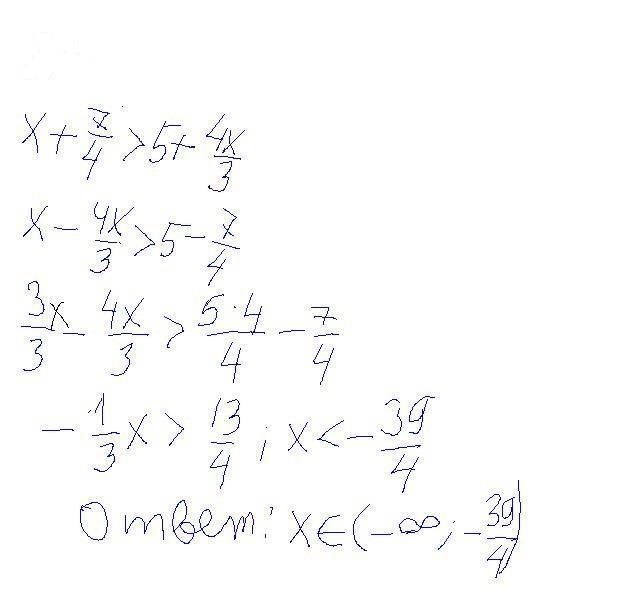 x + 7/4 > 5 + 4x/3
x - 4x/3 > 5 - 7/4
3x/3 - 4x/3 > 5·4/4 - 7/4
- 1/3 x > 13/4 ; x < - 39/4
Ответ: x ∈ (-∞; - 39/4)